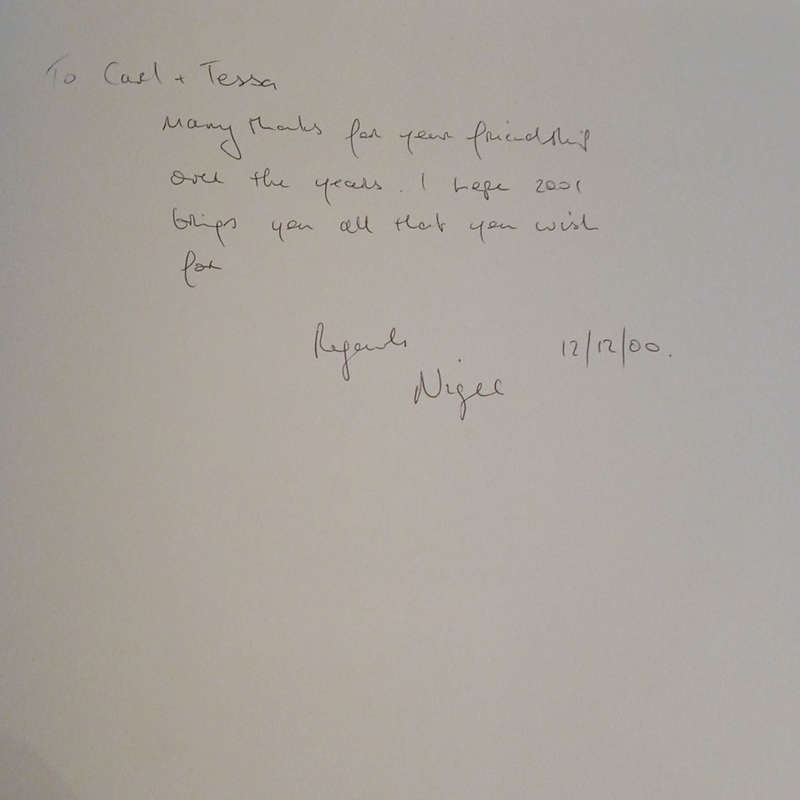 To Carl + Tessa
Many thanks for your friendship
over the years. I hope 2001
brings you all that you wish
for
Regards
12/12/00.
Nigel